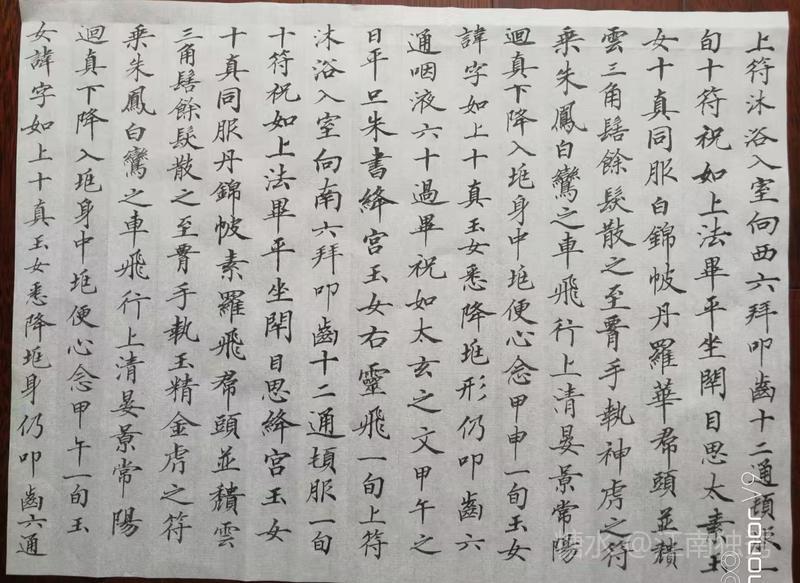 上符沐浴入室向西六拜叩齒十二通頓服一
旬十符祝如上法畢平坐閉目思太素玉
女十真同服白錦帔丹羅華帬頭並穨
雲三角髻餘髮散之至胷手執神虎之符
乗朱鳳白鸞之車飛行上清晏景常陽
迴真下降入兆身中兆便心念甲申一旬玉女
諱字如上十真玉女悉降兆形仍叩齒六
通咽液六十過畢祝如太玄之文甲午之
日平旦朱書絳宫玉女右靈飛一旬上符
沐浴入室向南六拜叩齒十二通頓服一旬
十符祝如上法畢平坐閉目思絳宫玉女
十真同服丹錦帔素羅飛帬頭並穨雲
三角髻餘髮散之至胷手執玉精金虎之符
乗朱鳳白鸞之車飛行上清晏景常陽
迴真下降入兆身中兆便心念甲午一旬玉
女諱字如上十真玉女悉降兆身仍叩齒六通
honor V9